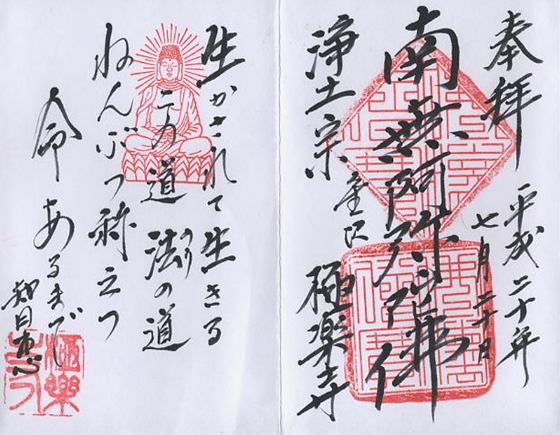 奉拝
平成二十年
七月二十日
南無阿弥陀佛
浄土宗
極楽寺
生かされて生きる
この道 法の道
ねんぶつ称えつつ
命あるまで